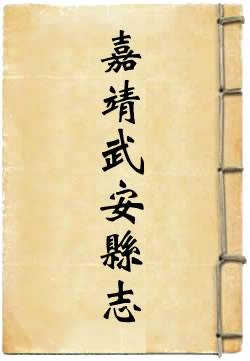 嘉靖武安縣志